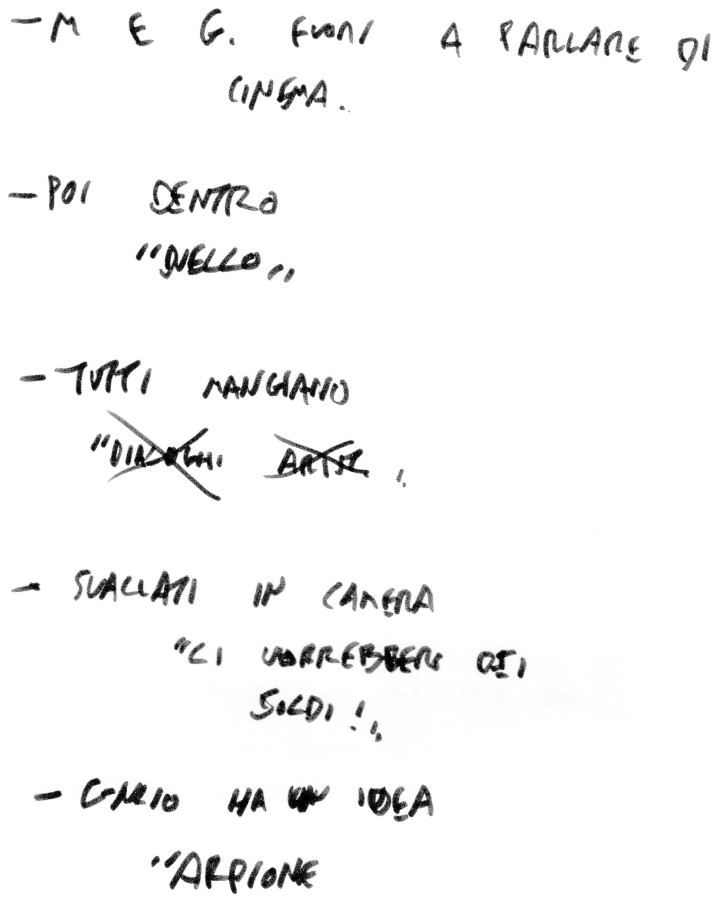 - M E G. FUORI A PARLARE DI
CINEMA.
- POI DENTRO
"DUELLO"
- TUTTI MANGIANO
"DIALOGHI
- SVACCATI IN CAMERA
"CI VORREBBERO DEI
SOLDI!"
- HA UN IDEA
"ARPIONE